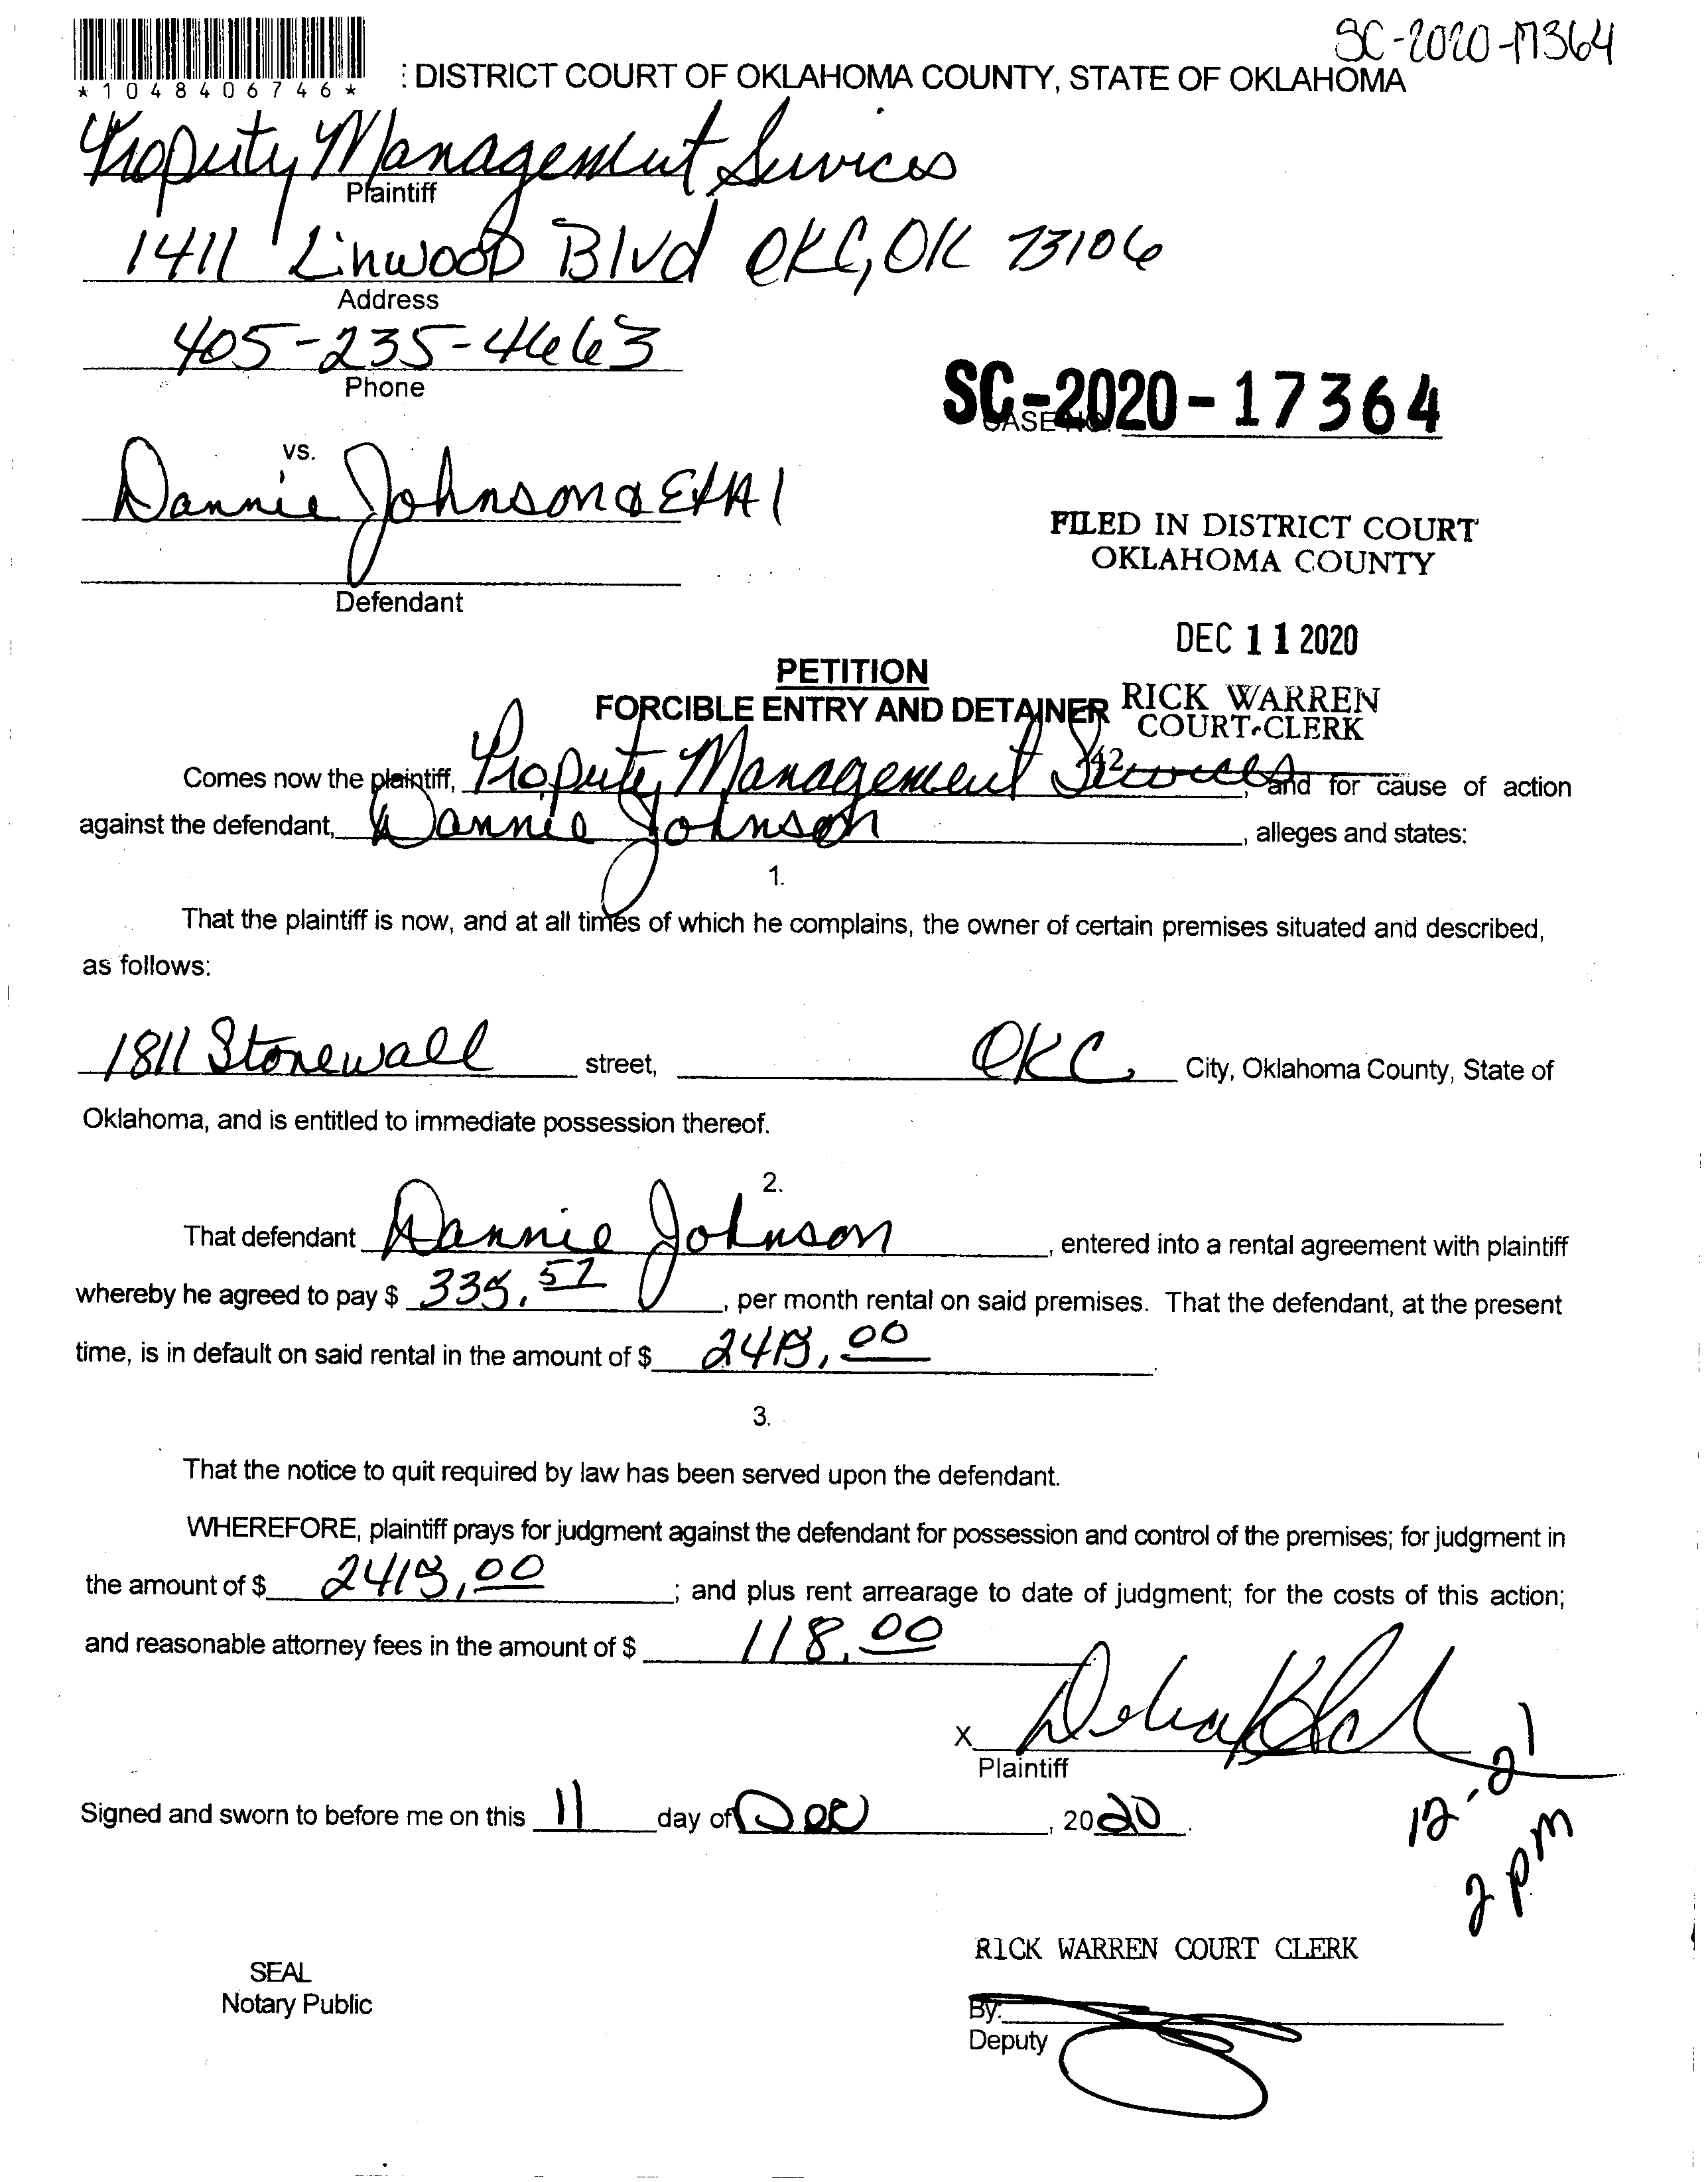 SC-2020-17364
*1048406746*
: DISTRICT COURT OF OKLAHOMA COUNTY, STATE OF OKLAHOMA
Property Management Services
Plaintiff
1411 Linwood Blvd OKC, OK 73106
Address
405-235-4663
Phone
SC-2020-17364
CASE NO.
vs.
Dannie Johnson & EtAl
FILED IN DISTRICT COURT
OKLAHOMA COUNTY
Defendant
DEC 11 2020
PETITION
FORCIBLE ENTRY AND DETAINER
RICK WARREN
COURT CLERK
42
Comes now the plaintiff, Property Management Services, and for cause of action
against the defendant, Dannie Johnson, alleges and states:
1.
That the plaintiff is now, and at all times of which he complains, the owner of certain premises situated and described,
as follows:
1811 Stonewall street, OKC City, Oklahoma County, State of
Oklahoma, and is entitled to immediate possession thereof.
2.
That defendant Dannie Johnson, entered into a rental agreement with plaintiff
whereby he agreed to pay $ , per month rental on said premises. That the defendant, at the present
time, is in default on said rental in the amount of $
3.
That the notice to quit required by law has been served upon the defendant.
WHEREFORE, plaintiff prays for judgment against the defendant for possession and control of the premises; for judgment in
the amount of $ ; and plus rent arrearage to date of judgment; for the costs of this action;
and reasonable attorney fees in the amount of $ 118.00
X
Plaintiff
Signed and sworn to before me on this 11 day of Dec, 2020.
12-21
2 pm
RICK WARREN COURT CLERK
SEAL
Notary Public
By:
Deputy